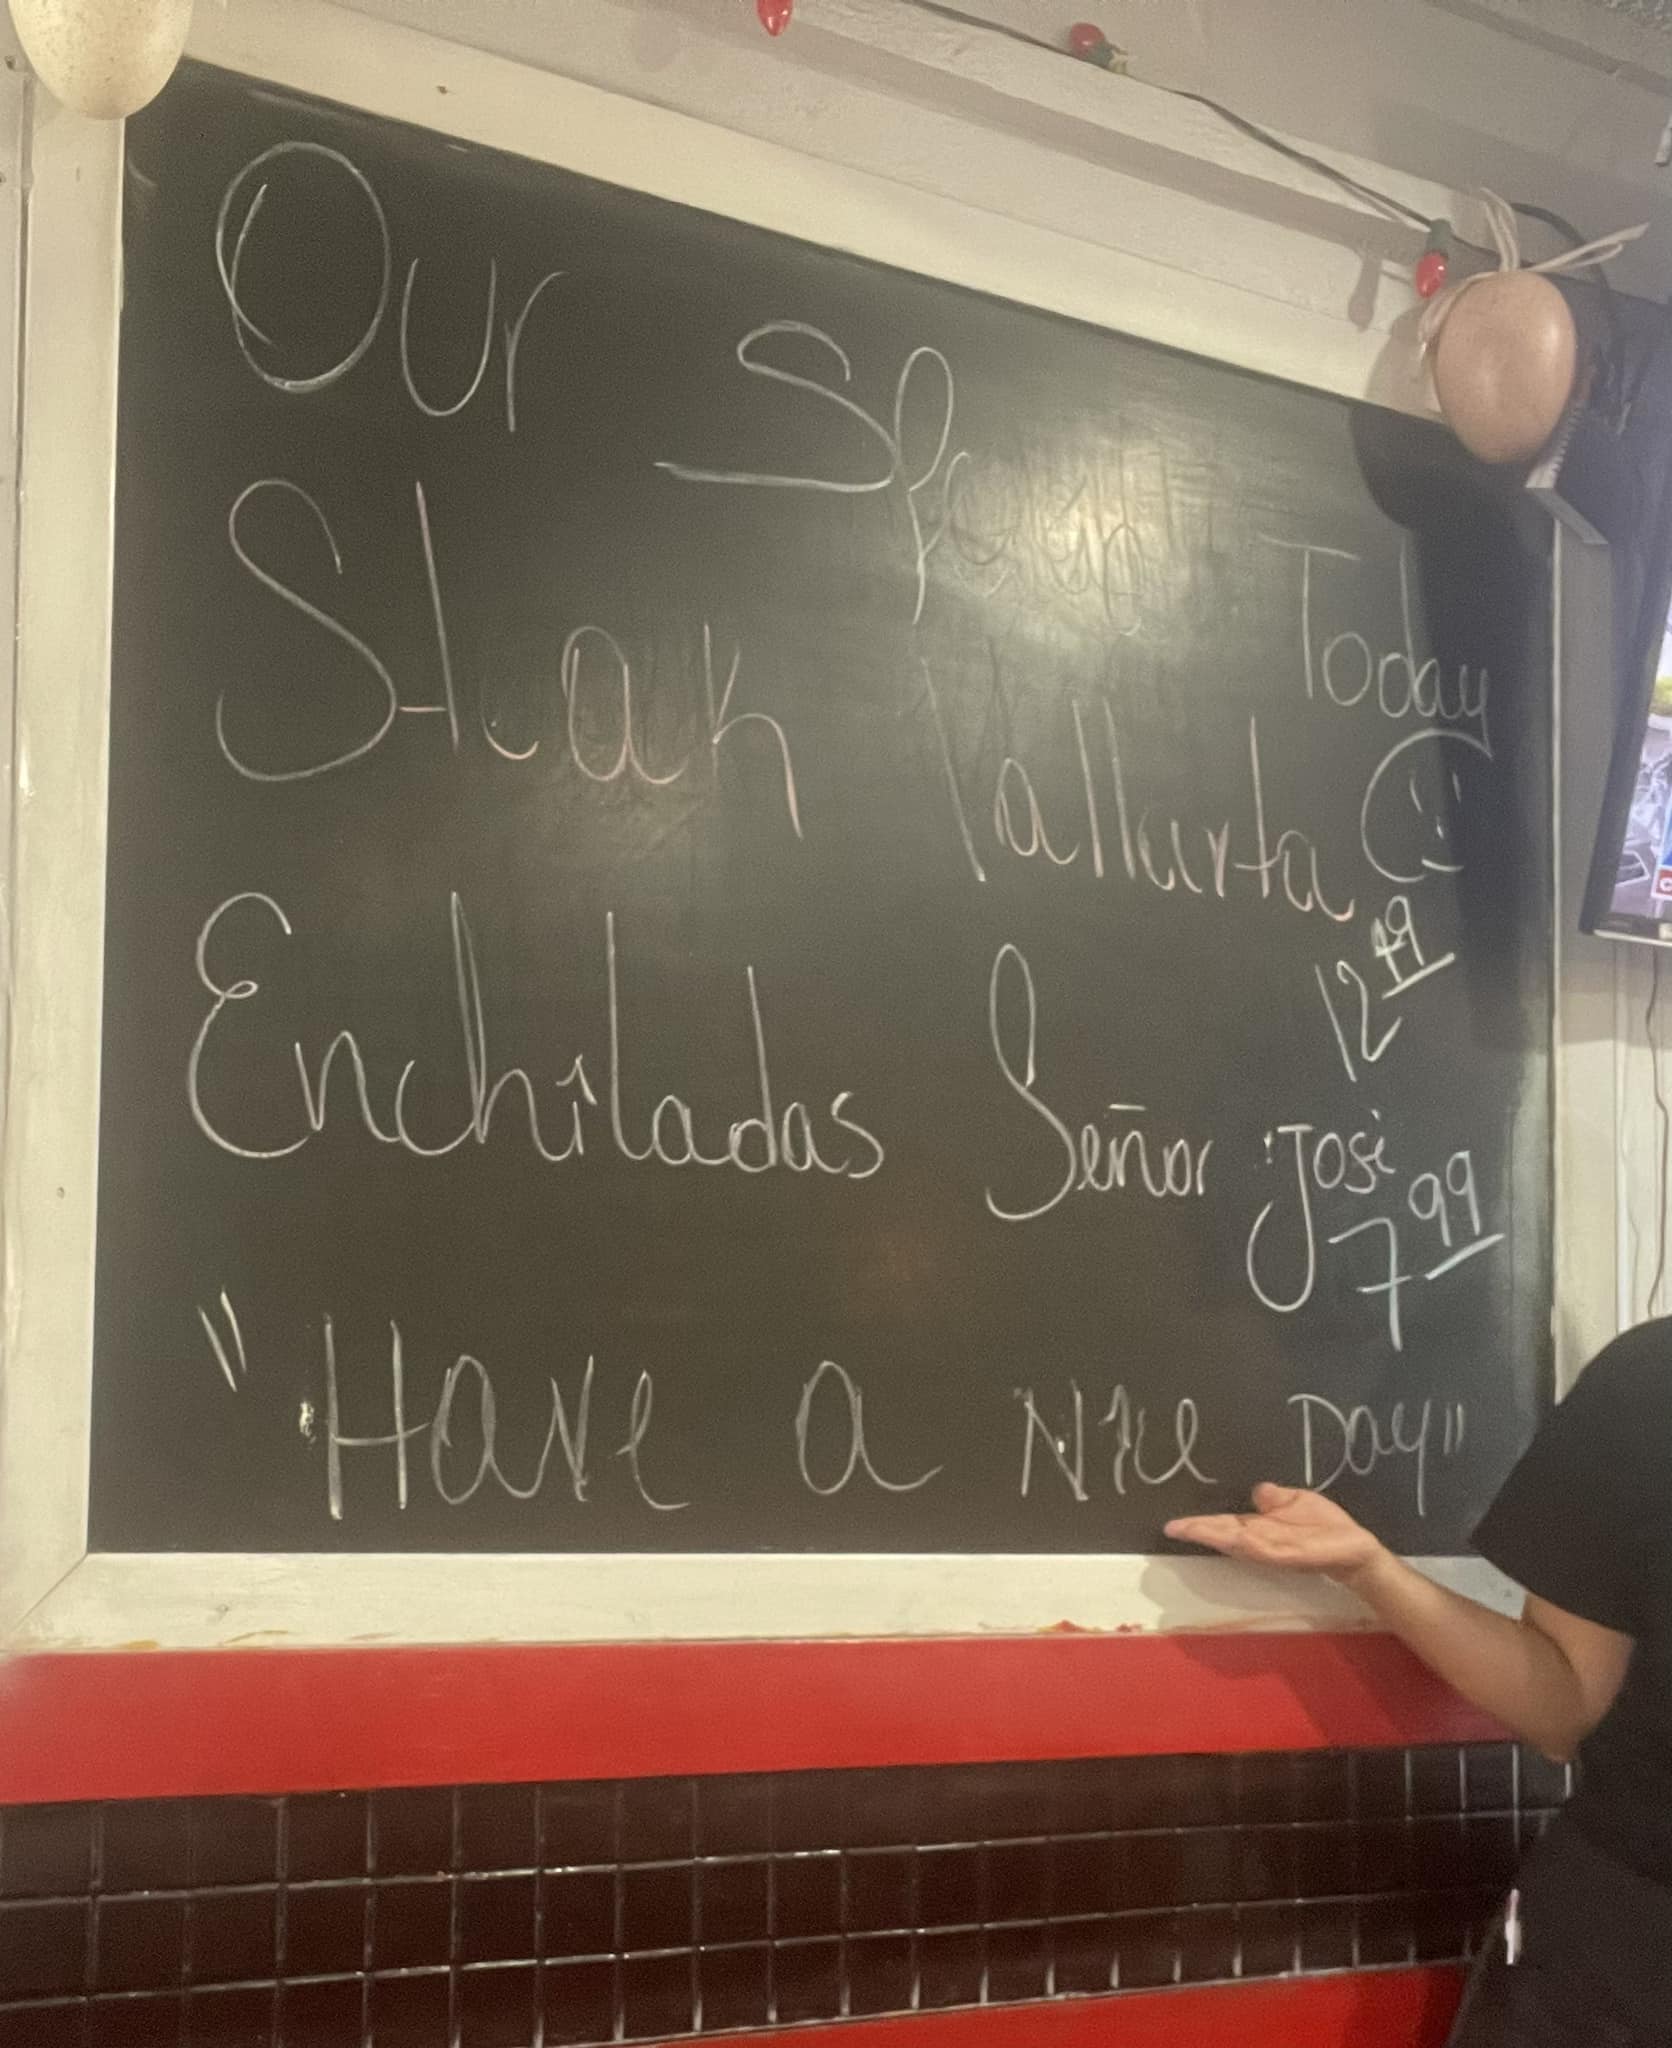 Our Specials Today
Steak Vallarta
12.49
Enchiladas Señor José
7.99
"Have a Nice Day"